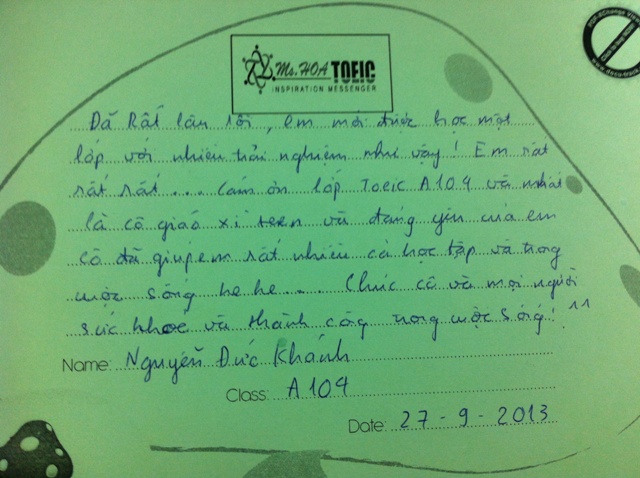 Ms. HOA TOEIC
INSPIRATION MESSENGER
Đã Rất lâu rồi, em mới được học một
lớp với nhiều trải nghiệm như vậy! Em rất
rất rất... Cảm ơn lớp Toeic A104 và nhất
là cô giáo xì teen và đáng yêu của em
cô đã giúp em rất nhiều cả học tập và trong
cuộc sống he he... Chúc cô và mọi người
sức khoẻ và thành công trong cuộc sống! ^^
Name: Nguyễn Đức Khánh
Class: A104
Date: 27 - 9 - 2013